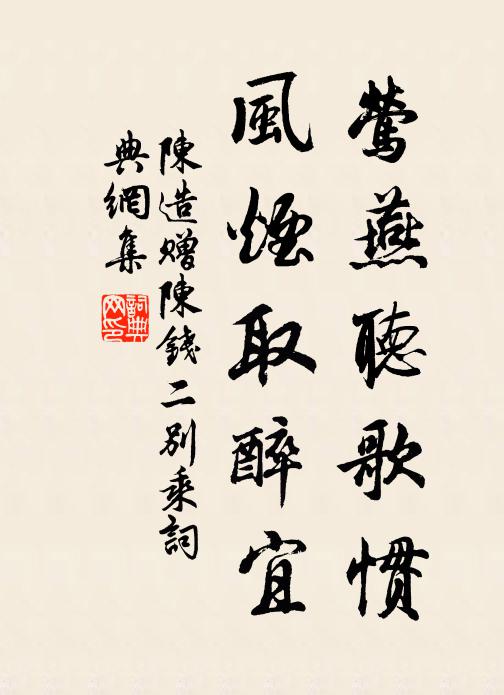 鶯燕聽歌慣
風煙取醉宜
陳造贈陳錢二別乘詞
典網集
詞典网印